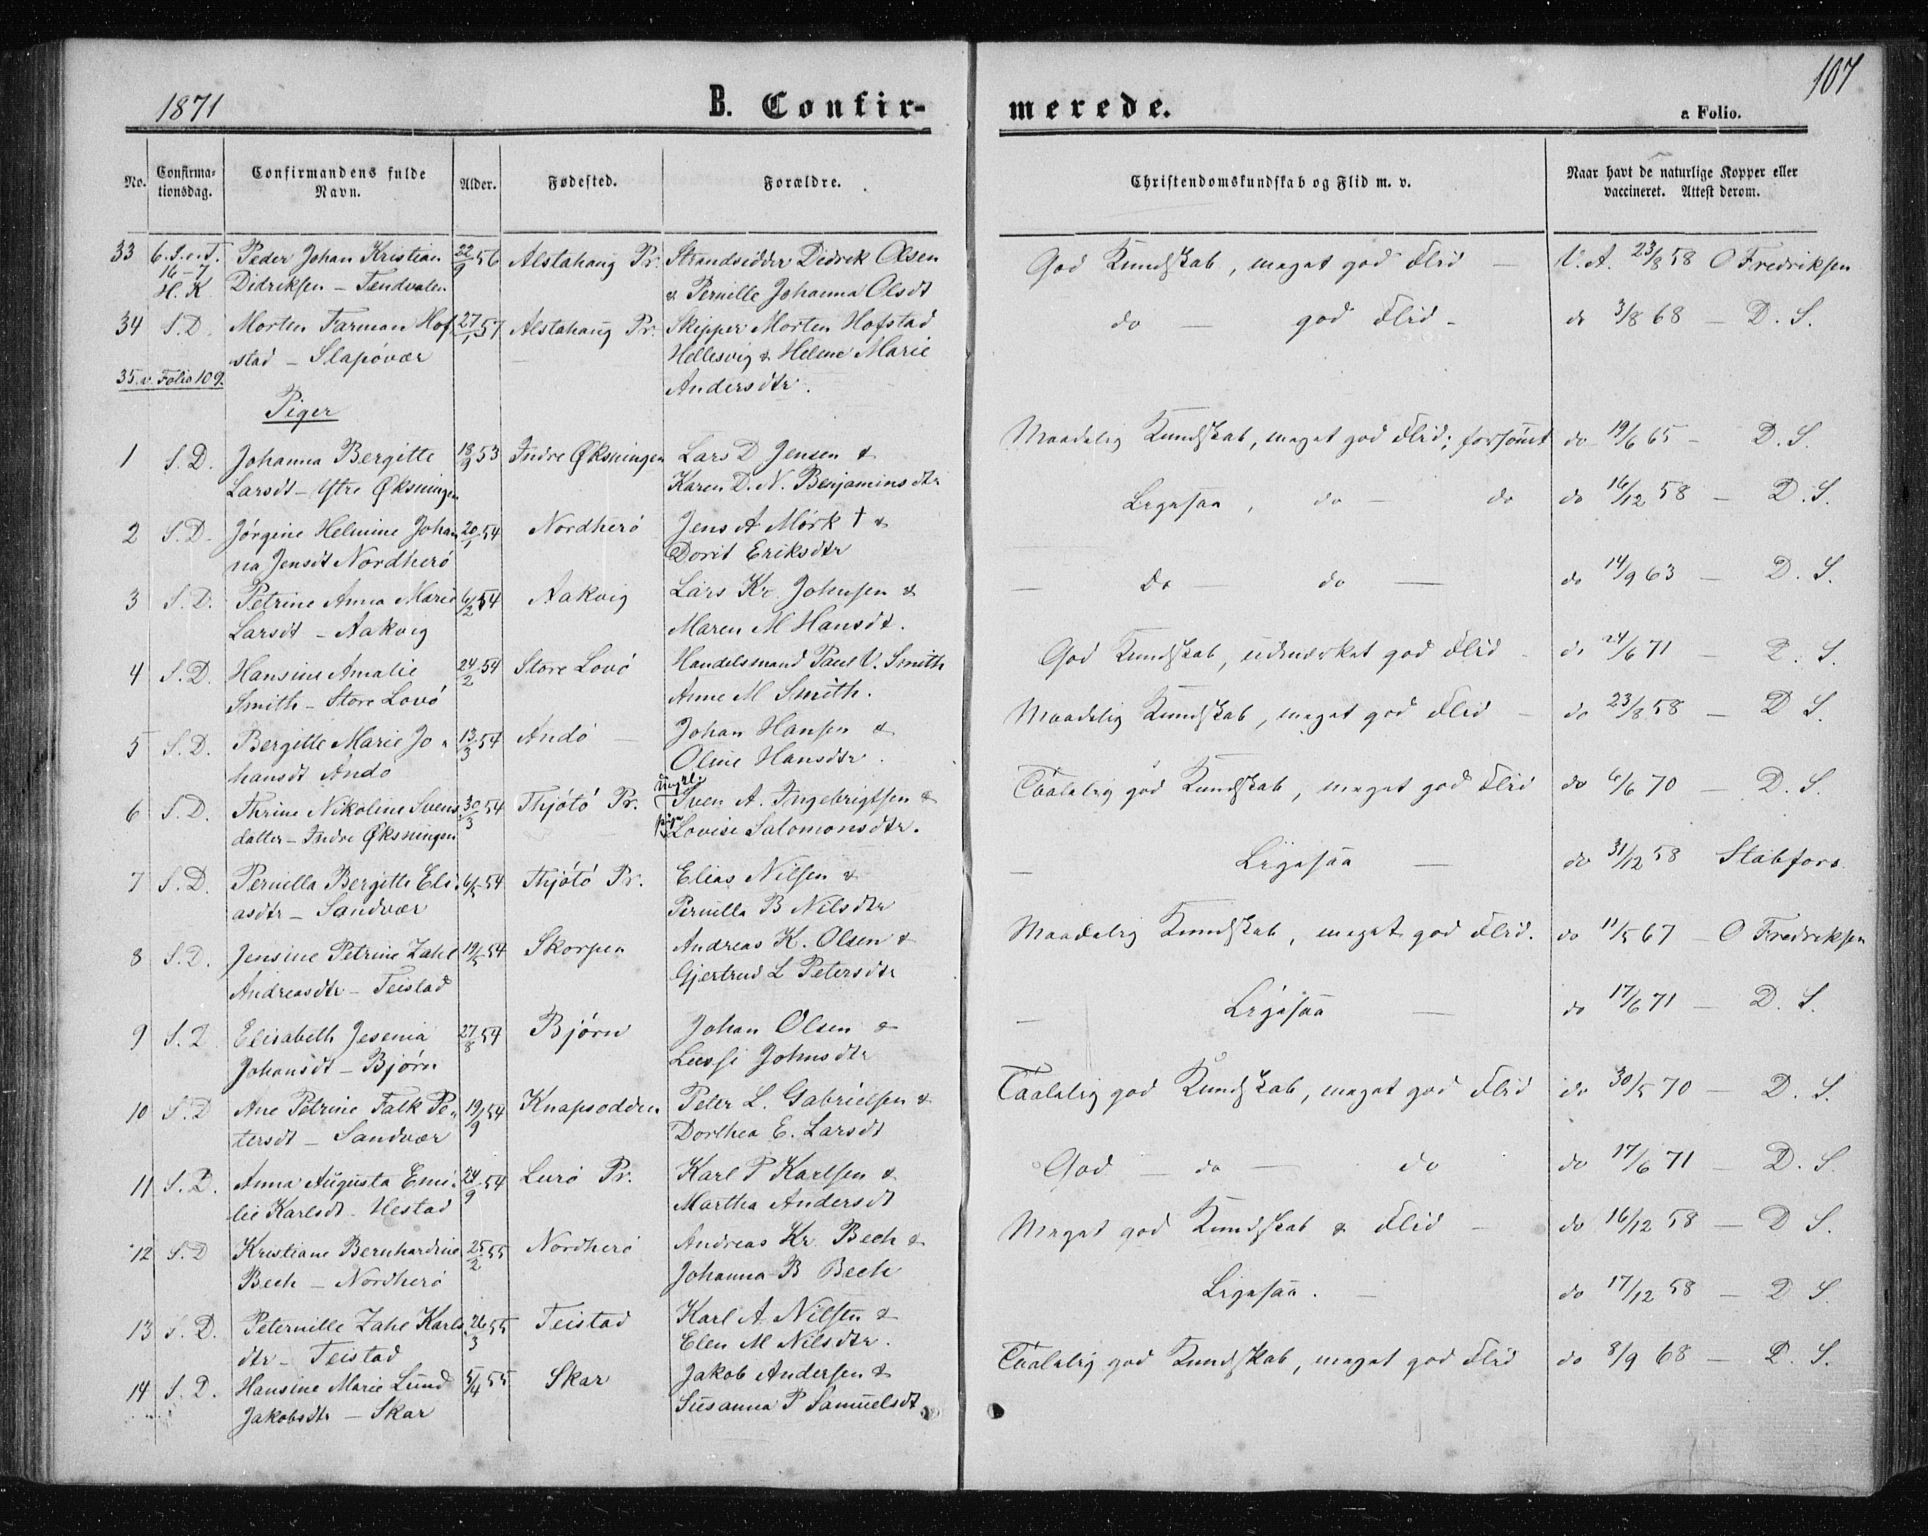 1871 B. Confir- merede. a Folio. 107
No. Confirma-tionsdag. Confirmandens fulde Navn. Alder. Fødested. Forældre. Christendomskundskab og Flid m. v. Naar havt de naturlige Kopper eller vaccineret. Attest derom.
33 6.S.e.T. Peder Johan Kristian 22/9 56 Alstahaug Pr. Strandsidder Didrik Olsen God Kundskab, meget god Flid — V. A. 23/8 58 O Fredriksen
16–7 H. K. Didriksen – Tendvalen & Pernille Johanna Olsdt
34 S. D. Morten Farman Hof- 27/1 57 Alstahaug Pr. Skipper Morten Hofstad do — god Flid – do 3/8 68 — D. S.
stad – Slapövær Hellesvig & Helene Marie
35. v. Folio 109. Andersdtr.
Piger
1 S. D. Johanna Bergitte 18/9 53 Indre Øksningen Lars D Jensen & Maadelig Kundskab, meget god Flid; forsömt do 19/6 65 – D. S.
Larsdt – Ytre Øksningen Karen D. N. Benjaminsdtr
2 S. D. Jörgine Helmine Johan- 20/1 54 Nordherö Jens A Mörk † & Ligesaa, do – do do 16/12 58 – D. S.
na Jensdt Nordherö Dorit Eriksdtr
3 S. D. Petrine Anna Marie 6/2 54 Aakvig Lars Kr. Johnsen & — do — do — do 14/9 63 – D. S.
Larsdt – Aakvig Maren M Hansdt.
4 S. D. Hansine Amalie 24/2 54 Store Lovö Handelsmand Paul V. Smith God Kundskab, udmærket god Flid – do 24/6 71 — D. S.
Smith – Store Lovö Anne M Smith.
5 S. D. Bergitte Marie Jo- 13/3 54 Andö — Johan Hansen & Maadelig Kundskab, meget god Flid – do 23/8 58 – D S.
hansdt Andö Oline Hansdtr.
6 S. D. Thrine Nikoline Svens 30/3 54 Thjötö Pr. Ungkl. Sven A. Ingebrigtsen & Taalelig god Kundskab, meget god Flid do 6/6 70 – D. S.
datter – Indre Øksningen pige Lovise Salomonsdtr.
7 S. D. Pernilla Bergitte Eli- 6/5 54 Thjötö Pr. Elias Nilsen & — Ligesaa — do 31/12 58 Stabfors.
asdtr – Sandvær Pernilla B Nilsdtr
8 S. D. Jensine Petrine Zahl 19/5 54 Skorpen Andreas K. Olsen & Maadelig Kundskab, meget god Flid. do 11/5 67 – O Fredriksen
Andreasdtr – Teistad Gjertrud L Petersdtr
9 S. D. Elisabeth Jesenia 27/8 54 Bjørn Johan Olsen & — Ligesaa — do 17/6 71 – D. S.
Johansdt – Bjørn Lussi Johnsdtr
10 S. D Ane Petrine Falk Pe- 19/9 54 Knapsodden Peter L. Gabrielsen & Taalelig god Kundskab, meget god Flid do 30/5 70 – D. S.
tersdt – Sandvær Dorthea E. Larsdt
11 S. D. Anna Augusta Emi- 24/9 54 Lurö Pr. Karl P Karlsen & God — do — do do 17/6 71 – D. S.
lie Karlsdt – Hestad Martha Andersdt
12 S. D Kristiane Bernhardine 25/2 55 Nordherö Andreas Kr. Bech & Meget god Kundskab & Flid – do 16/12 58 – D S.
Bech – Nordherö Johanna B Bech
13 S. D. Peternille Zahl Karls- 26/3 55 Teistad Karl A. Nilsen & Ligesaa. – do 17/12 58 – D S.
dtr – Teistad Elen M Nilsdtr.
14 S. D. Hansine Marie Lund 5/4 55 Skar Jakob Andersen & Taalelig god Kundskab, meget god Flid do 8/9 68 – D. S.
Jakobsdtr – Skar Susanna P Samuelsdt